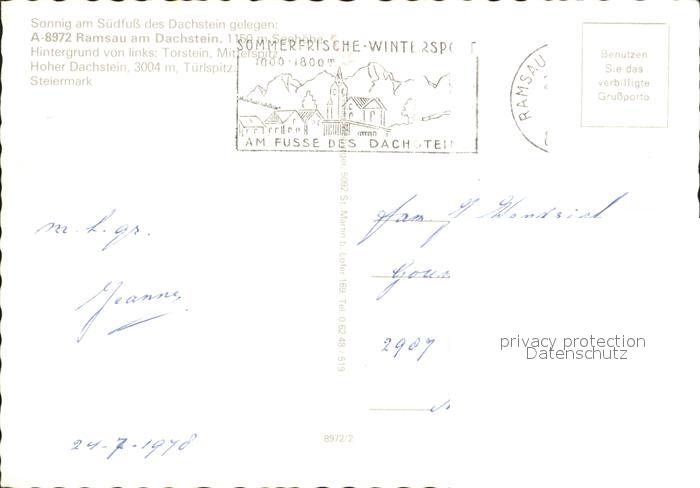 Sonnig am Südfuß des Dachstein gelegen:
A-8972 Ramsau am Dachstein, 1150 m Seehöhe
Hintergrund von links: Torstein, Mitterspitz,
Hoher Dachstein, 3004 m, Türlspitz.
Steiermark
SOMMERFRISCHE-WINTERSPORT
1000-1800m
AM FUSSE DES DACHSTEIN
RAMSAU
Benutzen
Sie das
verbilligte
Grußporto
5092 St. Martin b. Lofer 169, Tel. 0 62 48 / 519
m. h. gr.
Jeanne
24-7-1978
Fam.
2987
privacy protection
Datenschutz
8972/2